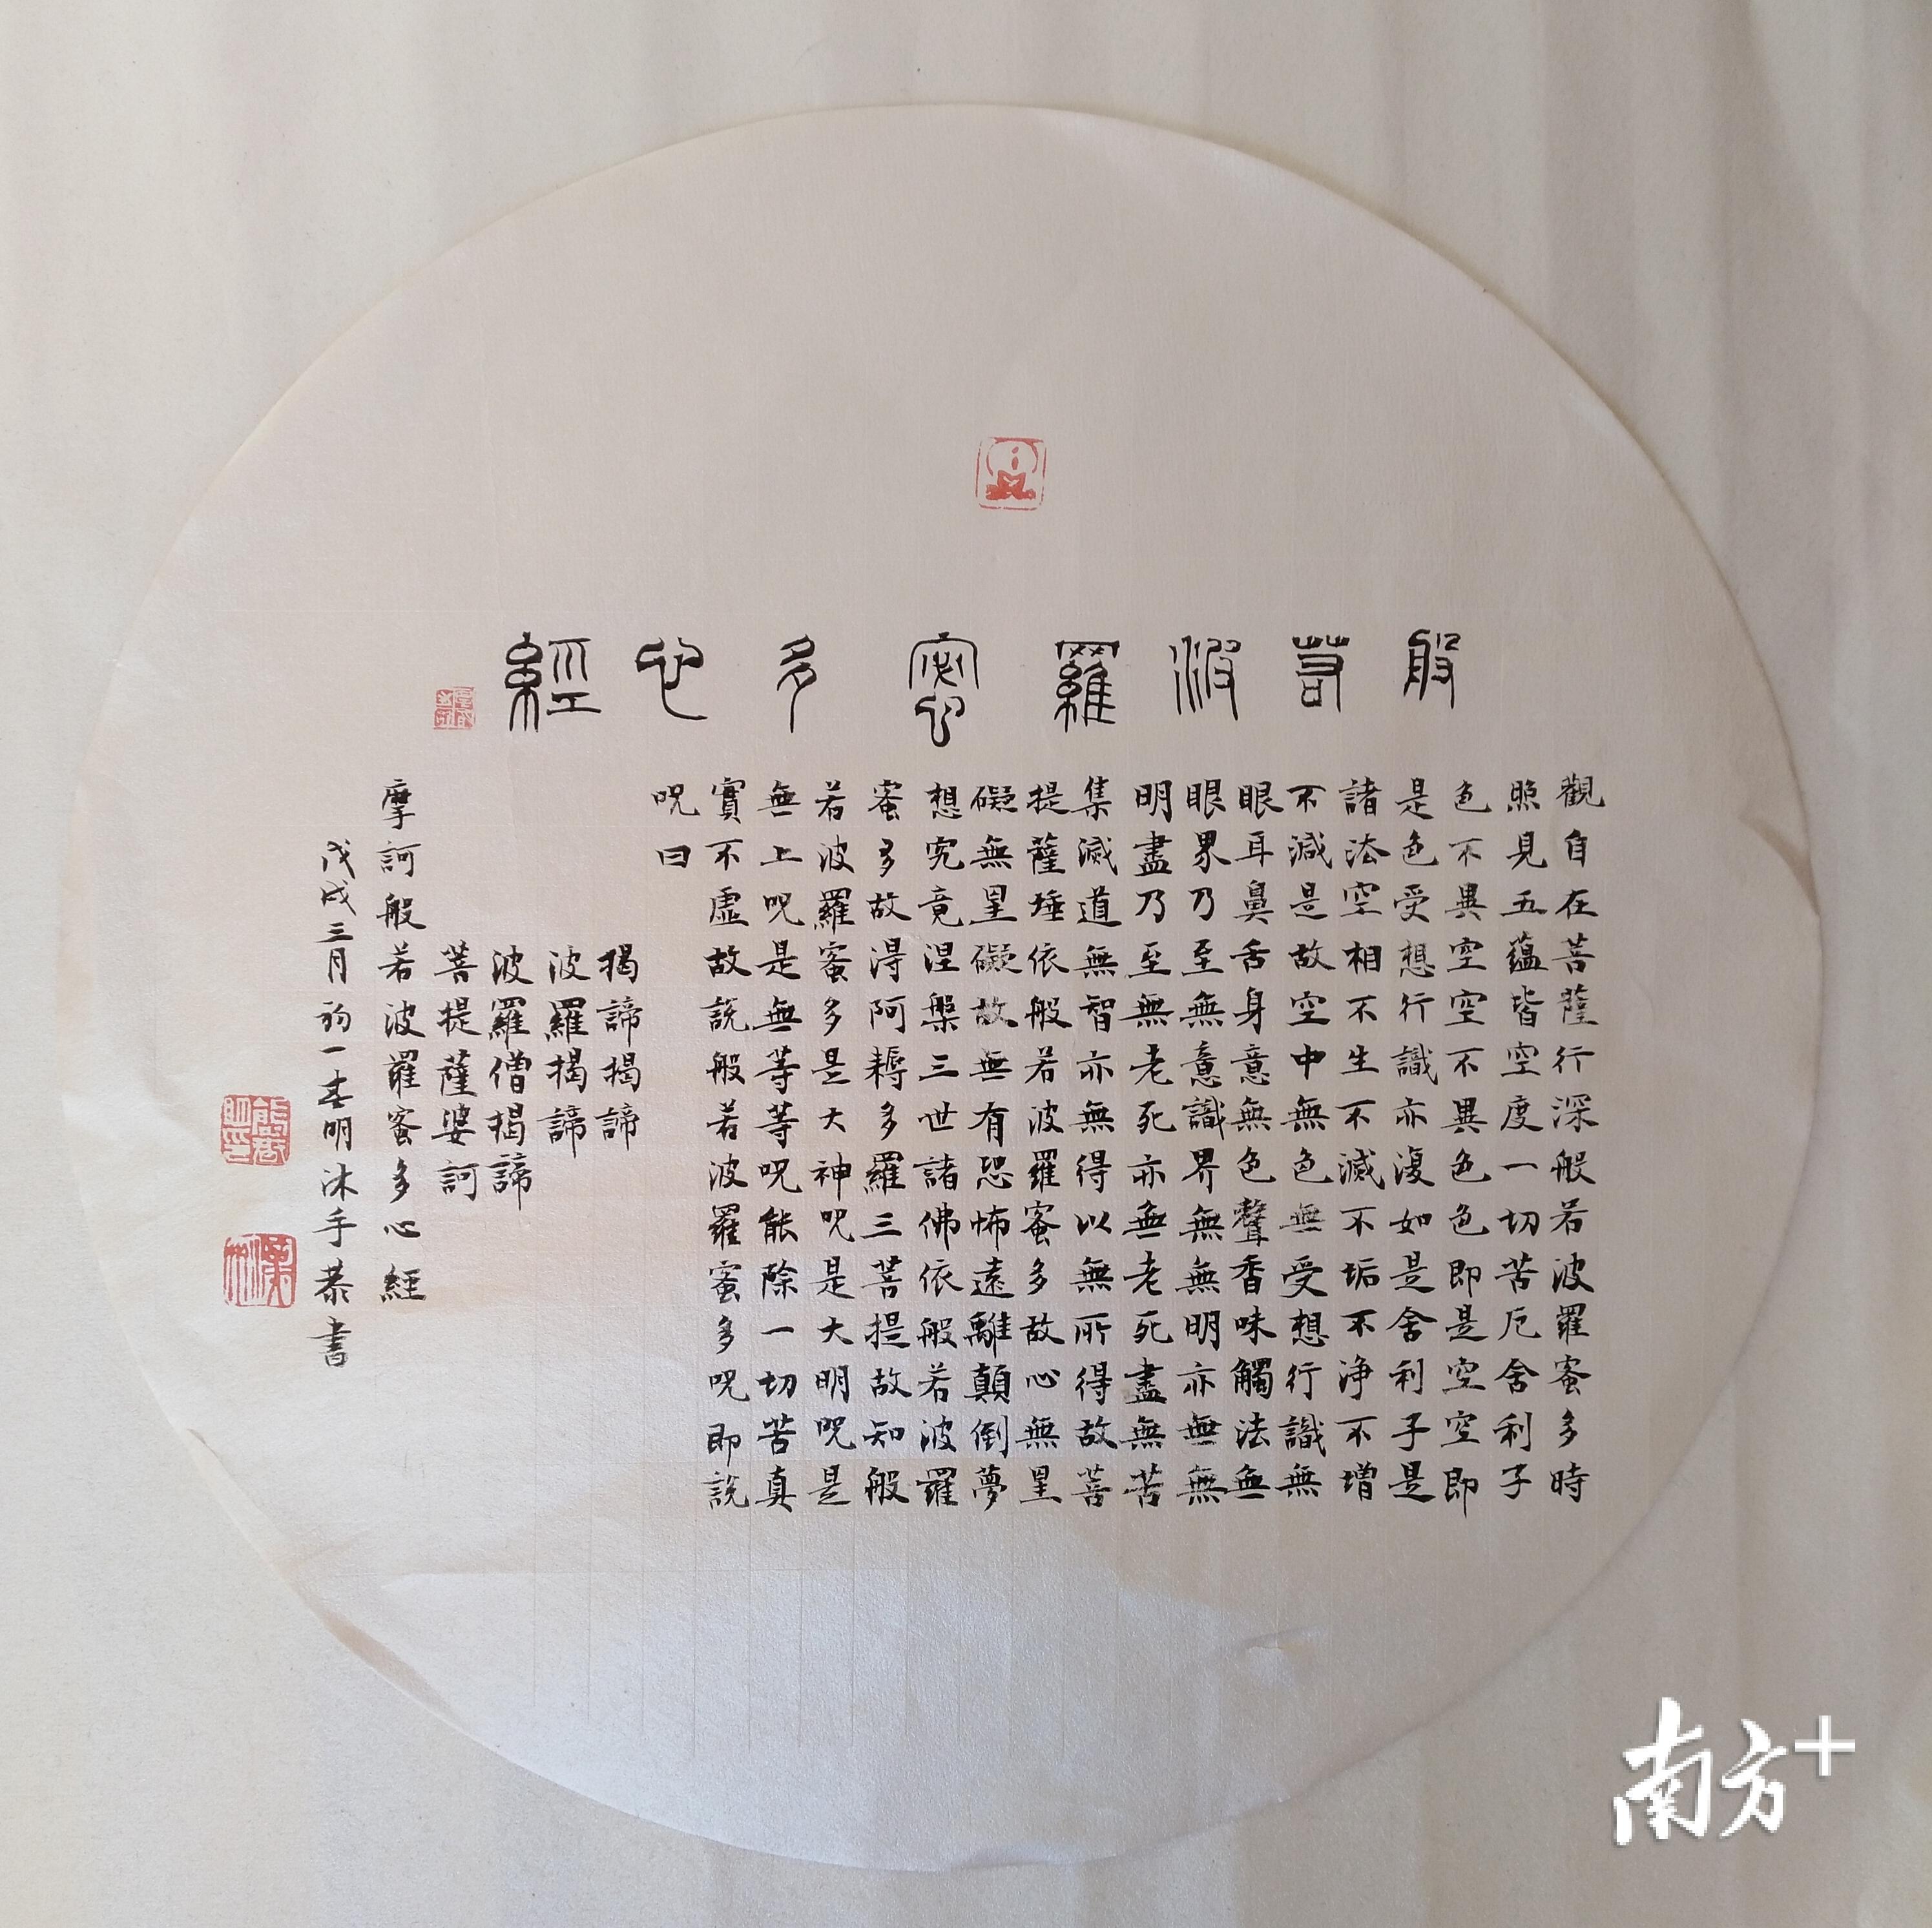 般若波羅蜜多心經
觀自在菩薩行深般若波羅蜜多時
照見五蘊皆空度一切苦厄舍利子
色不異空空不異色色即是空空即
是色受想行識亦復如是舍利子是
諸法空相不生不滅不垢不浄不增
不減是故空中無色無受想行識無
眼耳鼻舌身意無色聲香味觸法無
眼界乃至無意識界無無明亦無無
明盡乃至無老死亦無老死盡無苦
集滅道無智亦無得以無所得故菩
提薩埵依般若波羅蜜多故心無罣
礙無罣礙故無有恐怖遠離顛倒夢
想究竟涅槃三世諸佛依般若波羅
蜜多故得阿耨多羅三菩提故知般
若波羅蜜多是大神呪是大明呪是
無上呪是無等等呪能除一切苦真
實不虛故說般若波羅蜜多呪即說
呪曰
揭諦揭諦
波羅揭諦
波羅僧揭諦
菩提薩婆訶
摩訶般若波羅蜜多心經
戊戌三月初一春明沐手恭書
南方+